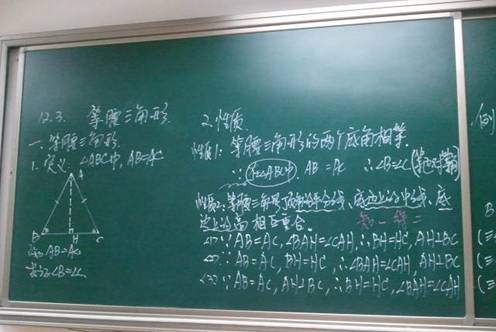 12.3. 等腰三角形.
一. 等腰三角形.
1. 定义: △ABC中, AB=AC
A
B H C
AB=AC
∠B=∠C
2. 性质.
性质1: 等腰三角形的两个底角相等.
∵ 在△ABC中 AB=AC ∴∠B=∠C (等边对等角)
性质2: 等腰三角形顶角的平分线、底边上的中线、底
边上的高 相互重合.
知一得二
<1> ∵ AB=AC, ∠BAH=∠CAH, ∴BH=HC, AH⊥BC
<2> ∵ AB=AC, BH=HC, ∴∠BAH=∠CAH, AH⊥BC
<3> ∵ AB=AC, AH⊥BC, ∴BH=HC, ∠BAH=∠CAH
例
B